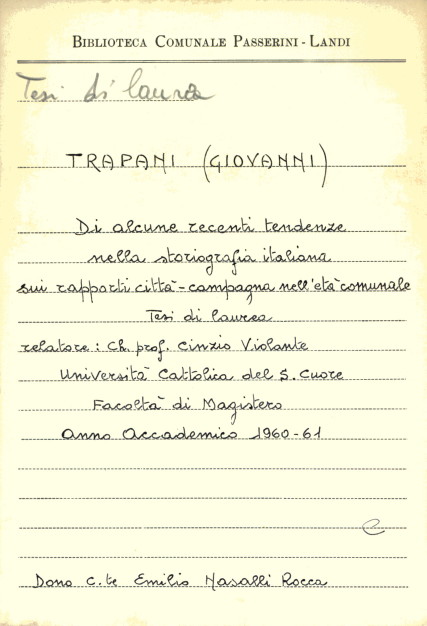 BIBLIOTECA COMUNALE PASSERINI - LANDI
Tesi di laurea
TRAPANI (GIOVANNI)
Di alcune recenti tendenze
nella storiografia italiana
sui rapporti città - campagna nell'età comunale
Tesi di laurea
relatore: Ch. prof. Cinzio Violante
Università Cattolica del S. Cuore
Facoltà di Magistero
Anno Accademico 1960-61
C
Dono C.te Emilio Nasalli Rocca